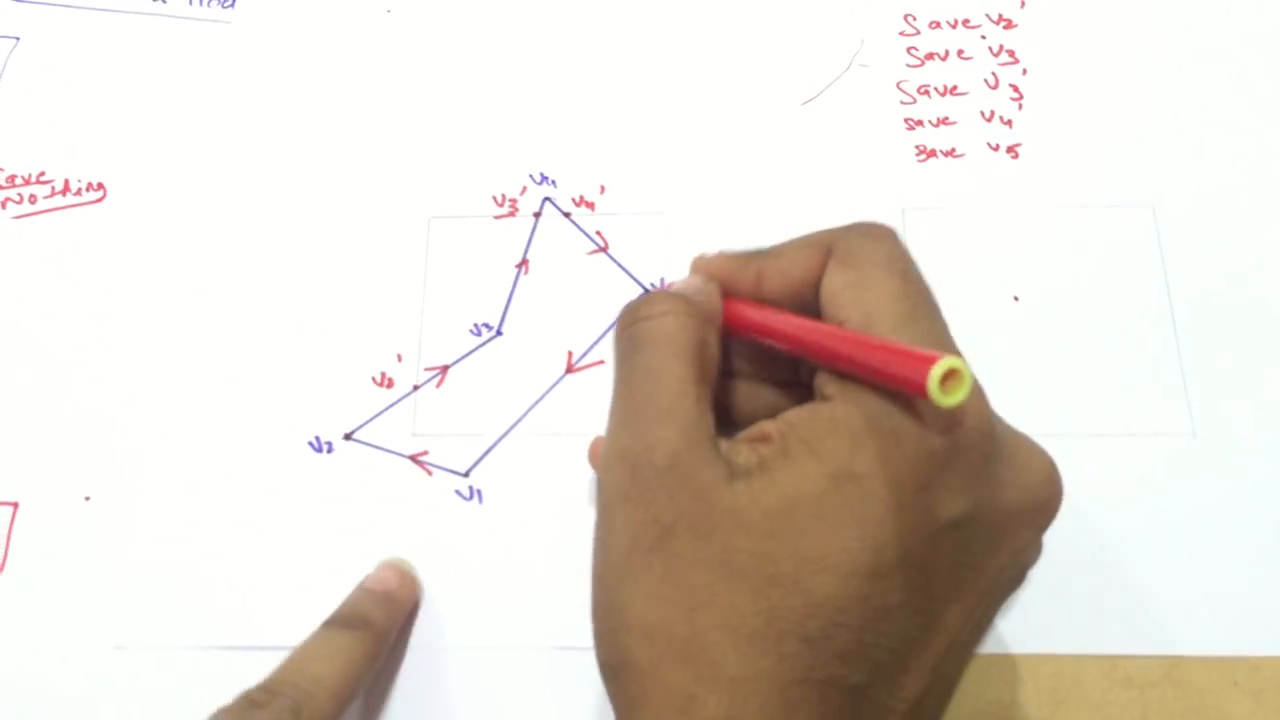 Save v2'
Save v3
Save v3'
save v4'
save v5
save
Nothing
v4
v3'
v4'
v3
v2'
v2
v1